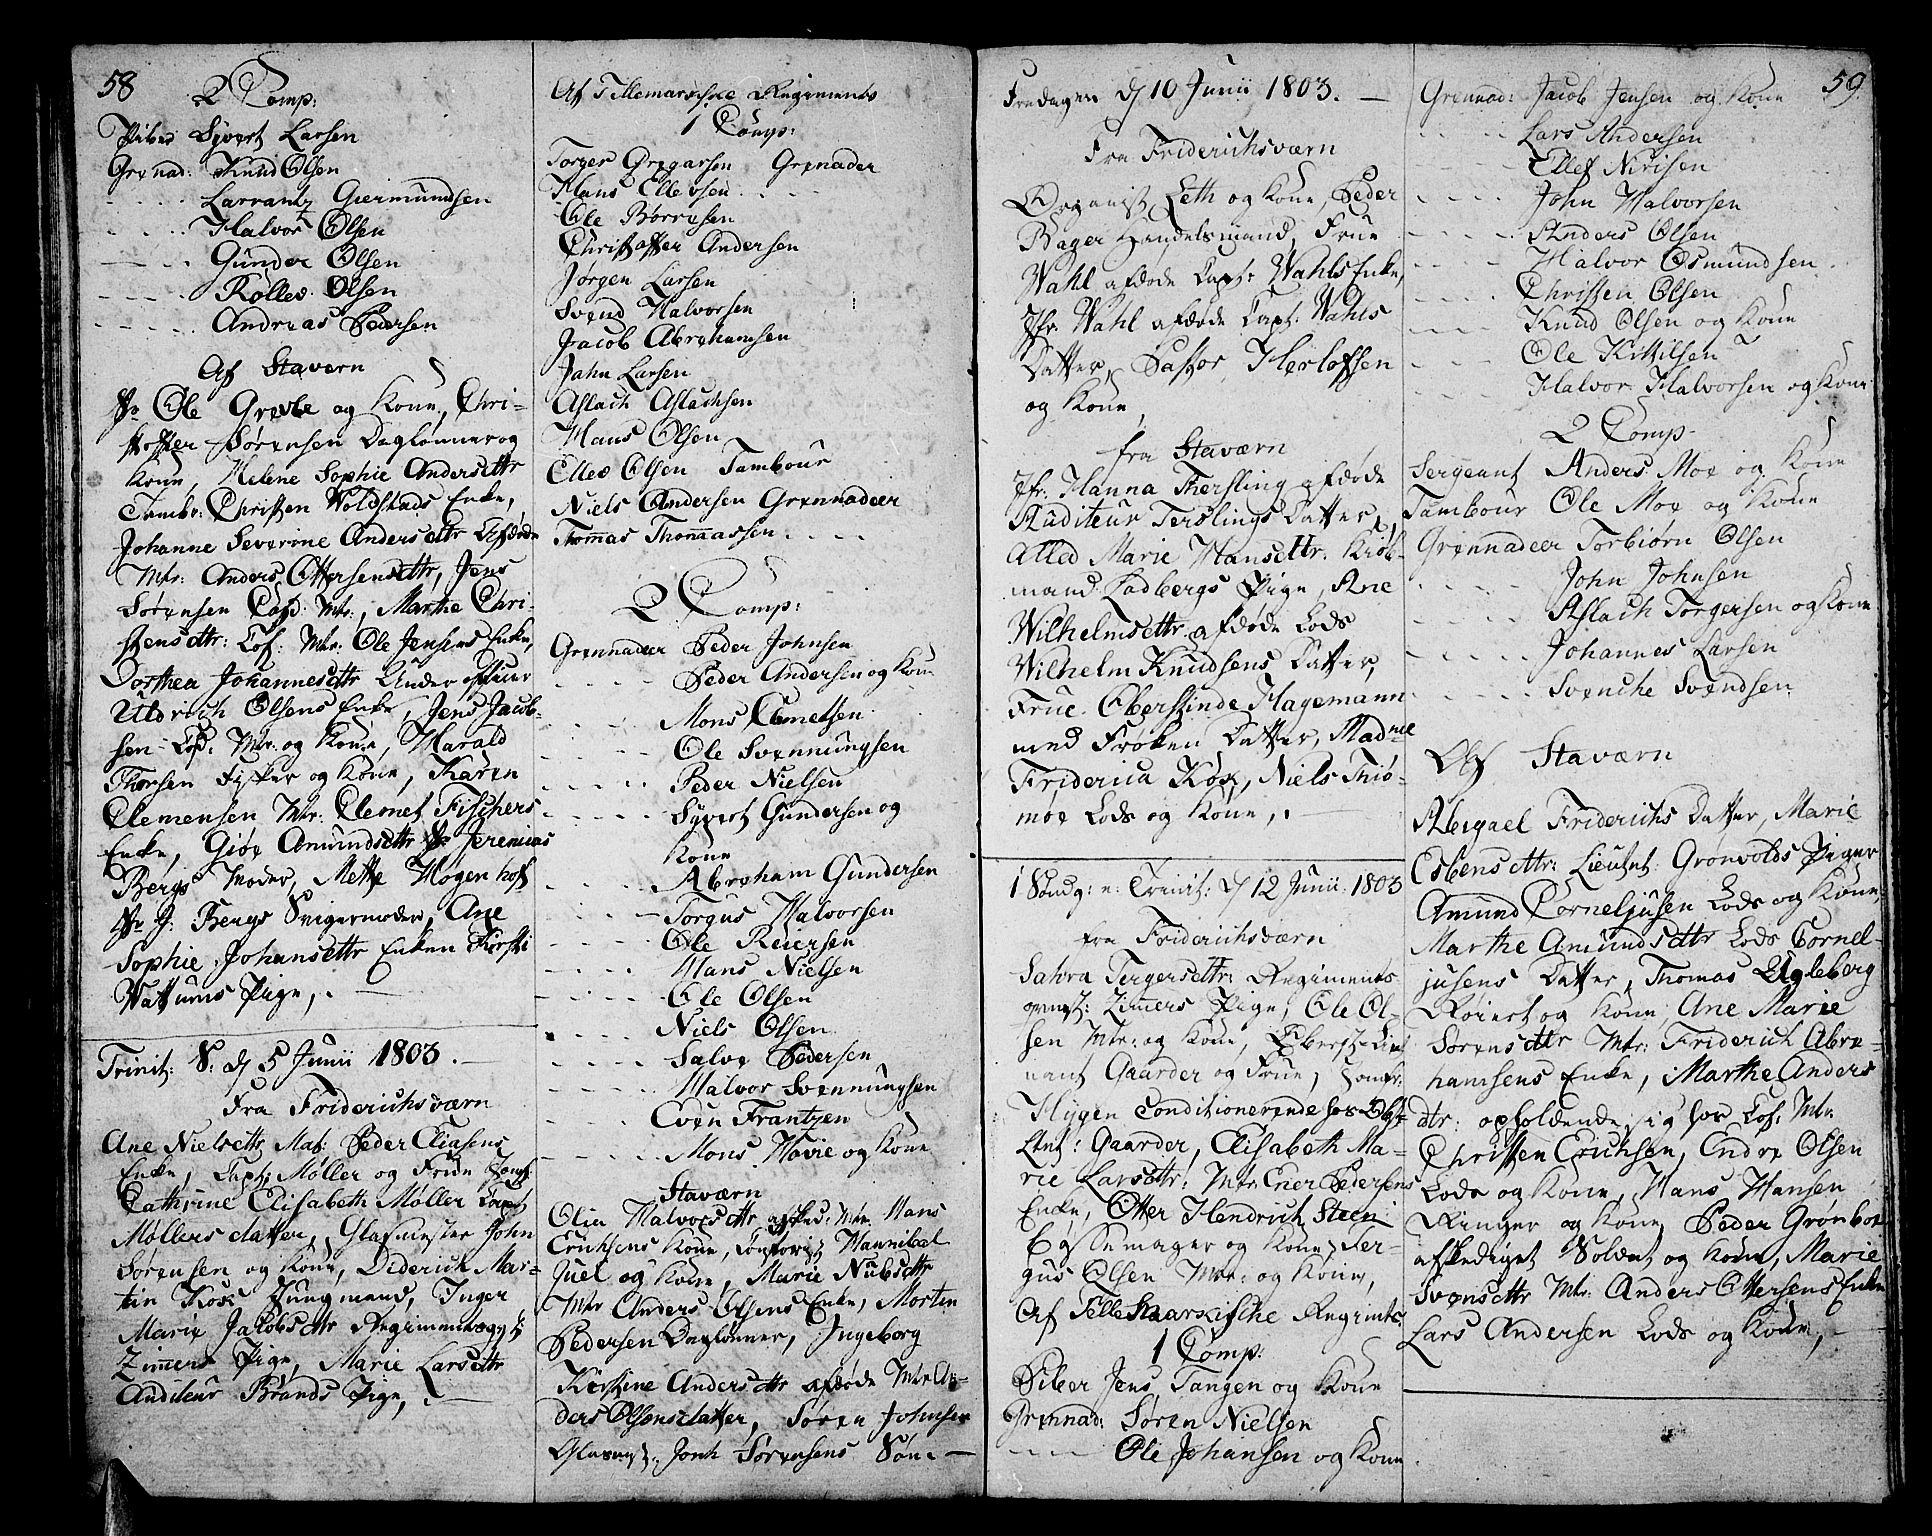 58
2 Comp:
Piber Syvert Larsen
Grenad: Knud Olsen
- - - - Larrantz Giermundsen
- - - - Halvor Olsen
- - - - Gunder Olsen
- - - - Rollev Olsen
- - - - Andreas Pedersen
Af Stavern
Sr Ole Grevle og Kone, Chri-
stoffer Sørensen Daglønner og
Kone, Helene Sophie Andersdttr
Tambr: Christen Woldstads Enke,
Johanne Severine Andersdttr Afdøde
Mtr: Anders Ottersensdttr, Jens
Sørensen Mtr:, Marthe Chri-
stensdttr: Los: Mtr: Ole Jensens Enke,
Dorthea Johannesdttr Under officier
Uldrich Olsens Enke, Jens Jacob-
sen Mtr: og Kone, Harald
Thorsen Fisker og Kone, Karen
Clemensen Mtr: Clemet Fischers
Enke, Giøe Amundsdttr Sr Jeremias
Bergs Moder, Mette Høgen hof
Sr J: Bergs Svigermoder, Ane
Sophie Johansdttr Enken Kirsti
Wattums Pige,
Trinit: S: d 5 Junii 1803.
Fra Friderichsværn
Ane Nielsdttr Mat: Peder Eliasens
Enke, Capt: Møller og Frue Jomf:
Cathrine Elisabeth Møller Capt
Møllers datter, Glasmester John
Sørensen og Kone, Diderich Mar-
tin Koss Jungmand, Inger
Marie Jacobsdttr Regimentsqz
Zimers Pige, Marie Larsdttr
Auditeur Brands Pige,
Af Tillemarsche Regiments
1 Comp:
Torger Gregarsen Grenader
Hans Ellevsen - -
Ole Børresen
Christoffer Andersen
Jørgen Larsen
Svend Halvorsen
Jacob Abrahamsen
Jahn Larsen
Aslach Aslachsen
Hans Olsen
Ellev Olsen Tambour
Niels Andersen Grennadeer
Thomas Thomassen - - -
2 Comp:
Grennadeer Peder Johnsen
- - - - Peder Andersen og Kone
- - - - Mons Clemetsen
- - - - Ole Svennungsen
- - - - Peder Nielsen
- - - - Syvert Gundersen og
Kone
- - - - Abraham Gundersen
- - - - Torgus Halvorsen
- - - - Ole Reiersen
- - - - Hans Nielsen
- - - - Ole Olsen
- - - - Niels Olsen
- - - - Salve Pedersen
- - - - Halvor Svennungsen
- - - - Even Frantzen
- - - - Mons Hovie og Kone
Staværn
Olia Halvorsdttr afsked: Mtr. Hans
Erichsens Kone, Hannibal
Juel og Kone, Marie Nubsdttr
Mtr Anders Olsens Enke, Morten
Pedersen Daglønner, Ingeborg
Kirstine Andersdttr afdøde Mtr An-
ders Olsens datter, Søren Johnsen
Glasmst: Jonh Sørensens Søn. -
Fredagen d 10 Junii 1803. -
Fra Friderichsværn
Organist Leth og Kone, Peder
Bager Handelsmand, Frue
Wahl afdøde Capt: Wahls Enke,
Jfr. Wahl afdøde Capt: Wahls
Datter, Pastor Herlofsen
og Kone,
fra Staværn
Jfr: Hanna Thersling afdøde
Auditeur Terslings Datter,
Alled Marie Hansdttr. Kiøb-
mand Fadbergs Pige, Ane
Wilhelmsdttr afdøde Lods
Wilhelm Knudsens Datter,
Frue Oberstinde Hagemann
med Frøken Datter, Madme
Friderica Kox, Niels Thiø-
møe Lods og Kone,
1 Søndg: e: Trinit: d 12 Junii 1803
fra Friderichsværn
Sahra Tergersdttr: Regiments
qvmst: Zimers Pige, Ole Ol-
sen Mtr: og Kone, Oberst Lieut
nant Gaarder og Frue, Jomfr:
Hygen Conditionerende hos Obst
Ltnt: Gaarder, Elisabeth Ma-
rie Larsdttr: Mtr. Ener Pedersens
Enke, Otter Hendrich Steen
Bøssemager og Kone, Ter-
gus Olsen Mtr: og Kone,
Af Tellemarkiske Regimts
1 Comp:
Piber Jens Tangen og Kone
Grennad: Søren Nielsen
- - - - Ole Johansen og Kone
59.
Grennad: Jacob Jensen og Kone
- - - - Lars Andersen
- - - - Ellef Nirisen
- - - - John Halvorsen
- - - - Anders Olsen
- - - - Halvor Osmundsen
- - - - Christen Olsen
- - - - Knud Olsen og Kone
- - - - Ole Kittilsen
- - - - Halvor Halvorsen og Kone
2 Comp
Sergeant Anders Moe og Kone
Tambour Ole Moe og Kone
Grennadeer Torbiørn Olsen
- - - - John Johnsen
- - - - Aslach Torgersen og Kone
- - - - Johannes Larsen
- - - - Svenche Svendsen
Af Staværn
Abigael Friderichs Datter, Marie
Esbensdttr: Lieutnt. Grønvolds Piger
Amund Corneljusen Lods og Kone,
Marthe Amundsdttr Lods Cornel-
jusens Datter, Thomas Ugleberg
Røiert og Kone, Ane Marie
Sørensdttr Mtr: Friderich Abra-
hamsens Enke, Marthe Anders
dtr: opholdende sig hos Lof: Mtr.
Christen Erichsen, Endre Olsen
Lods og Kone, Hans Hansen
Ringer og Kone, Peder Grønboe
afskediget Soldat og Kone, Marie
Svensdttr Mtr: Anders Ottersens Enke
Lars Andersen Lods og Kone, -